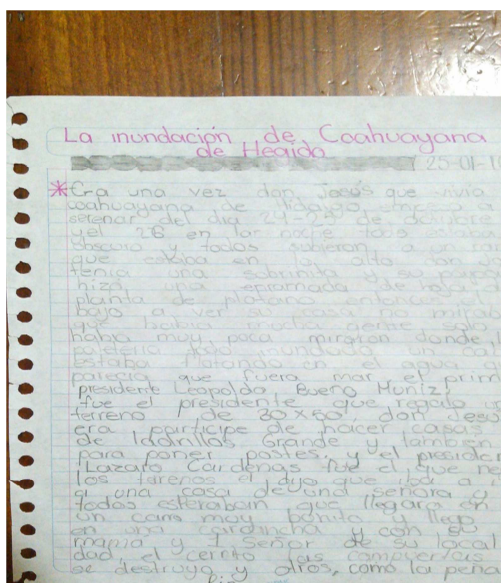 La inundación de Coahuayana
de Heajda
25-01-1
*Era una vez don Jesús que vivía
coahuayana de Hidalgo
serenar del dia 24-25 de
y el 26 en la noche todo estaba
obscuro y todos subieron a
que estaba en lo alto don
tenia una sobrinita y su papá
hizo una enramada de
planta de platano entonces
bajo a ver su casa no
que habia mucha gente solo
habia muy poca miraron donde
todo inundado un
estaba flotando en el agua
parecia que fuera mar el prim
presidente Leopoldo Buero Muniz,
fue el presidente que regalo
terreno de 30x50 don Jesu
era participe de hacer casas
de ladrillos Grande y tambien
para poner postes, y el presiden
Lazaro Cardenas fue el que
los terenos el dijo que iba a
a una casa de una señora y
todos esteraban que llegara en
un carro muy bonito y llego
en una carcancha y con su
y 1 Señor de su local
dad, el cerrito las compuertas
se destruyo y otros, como la peña